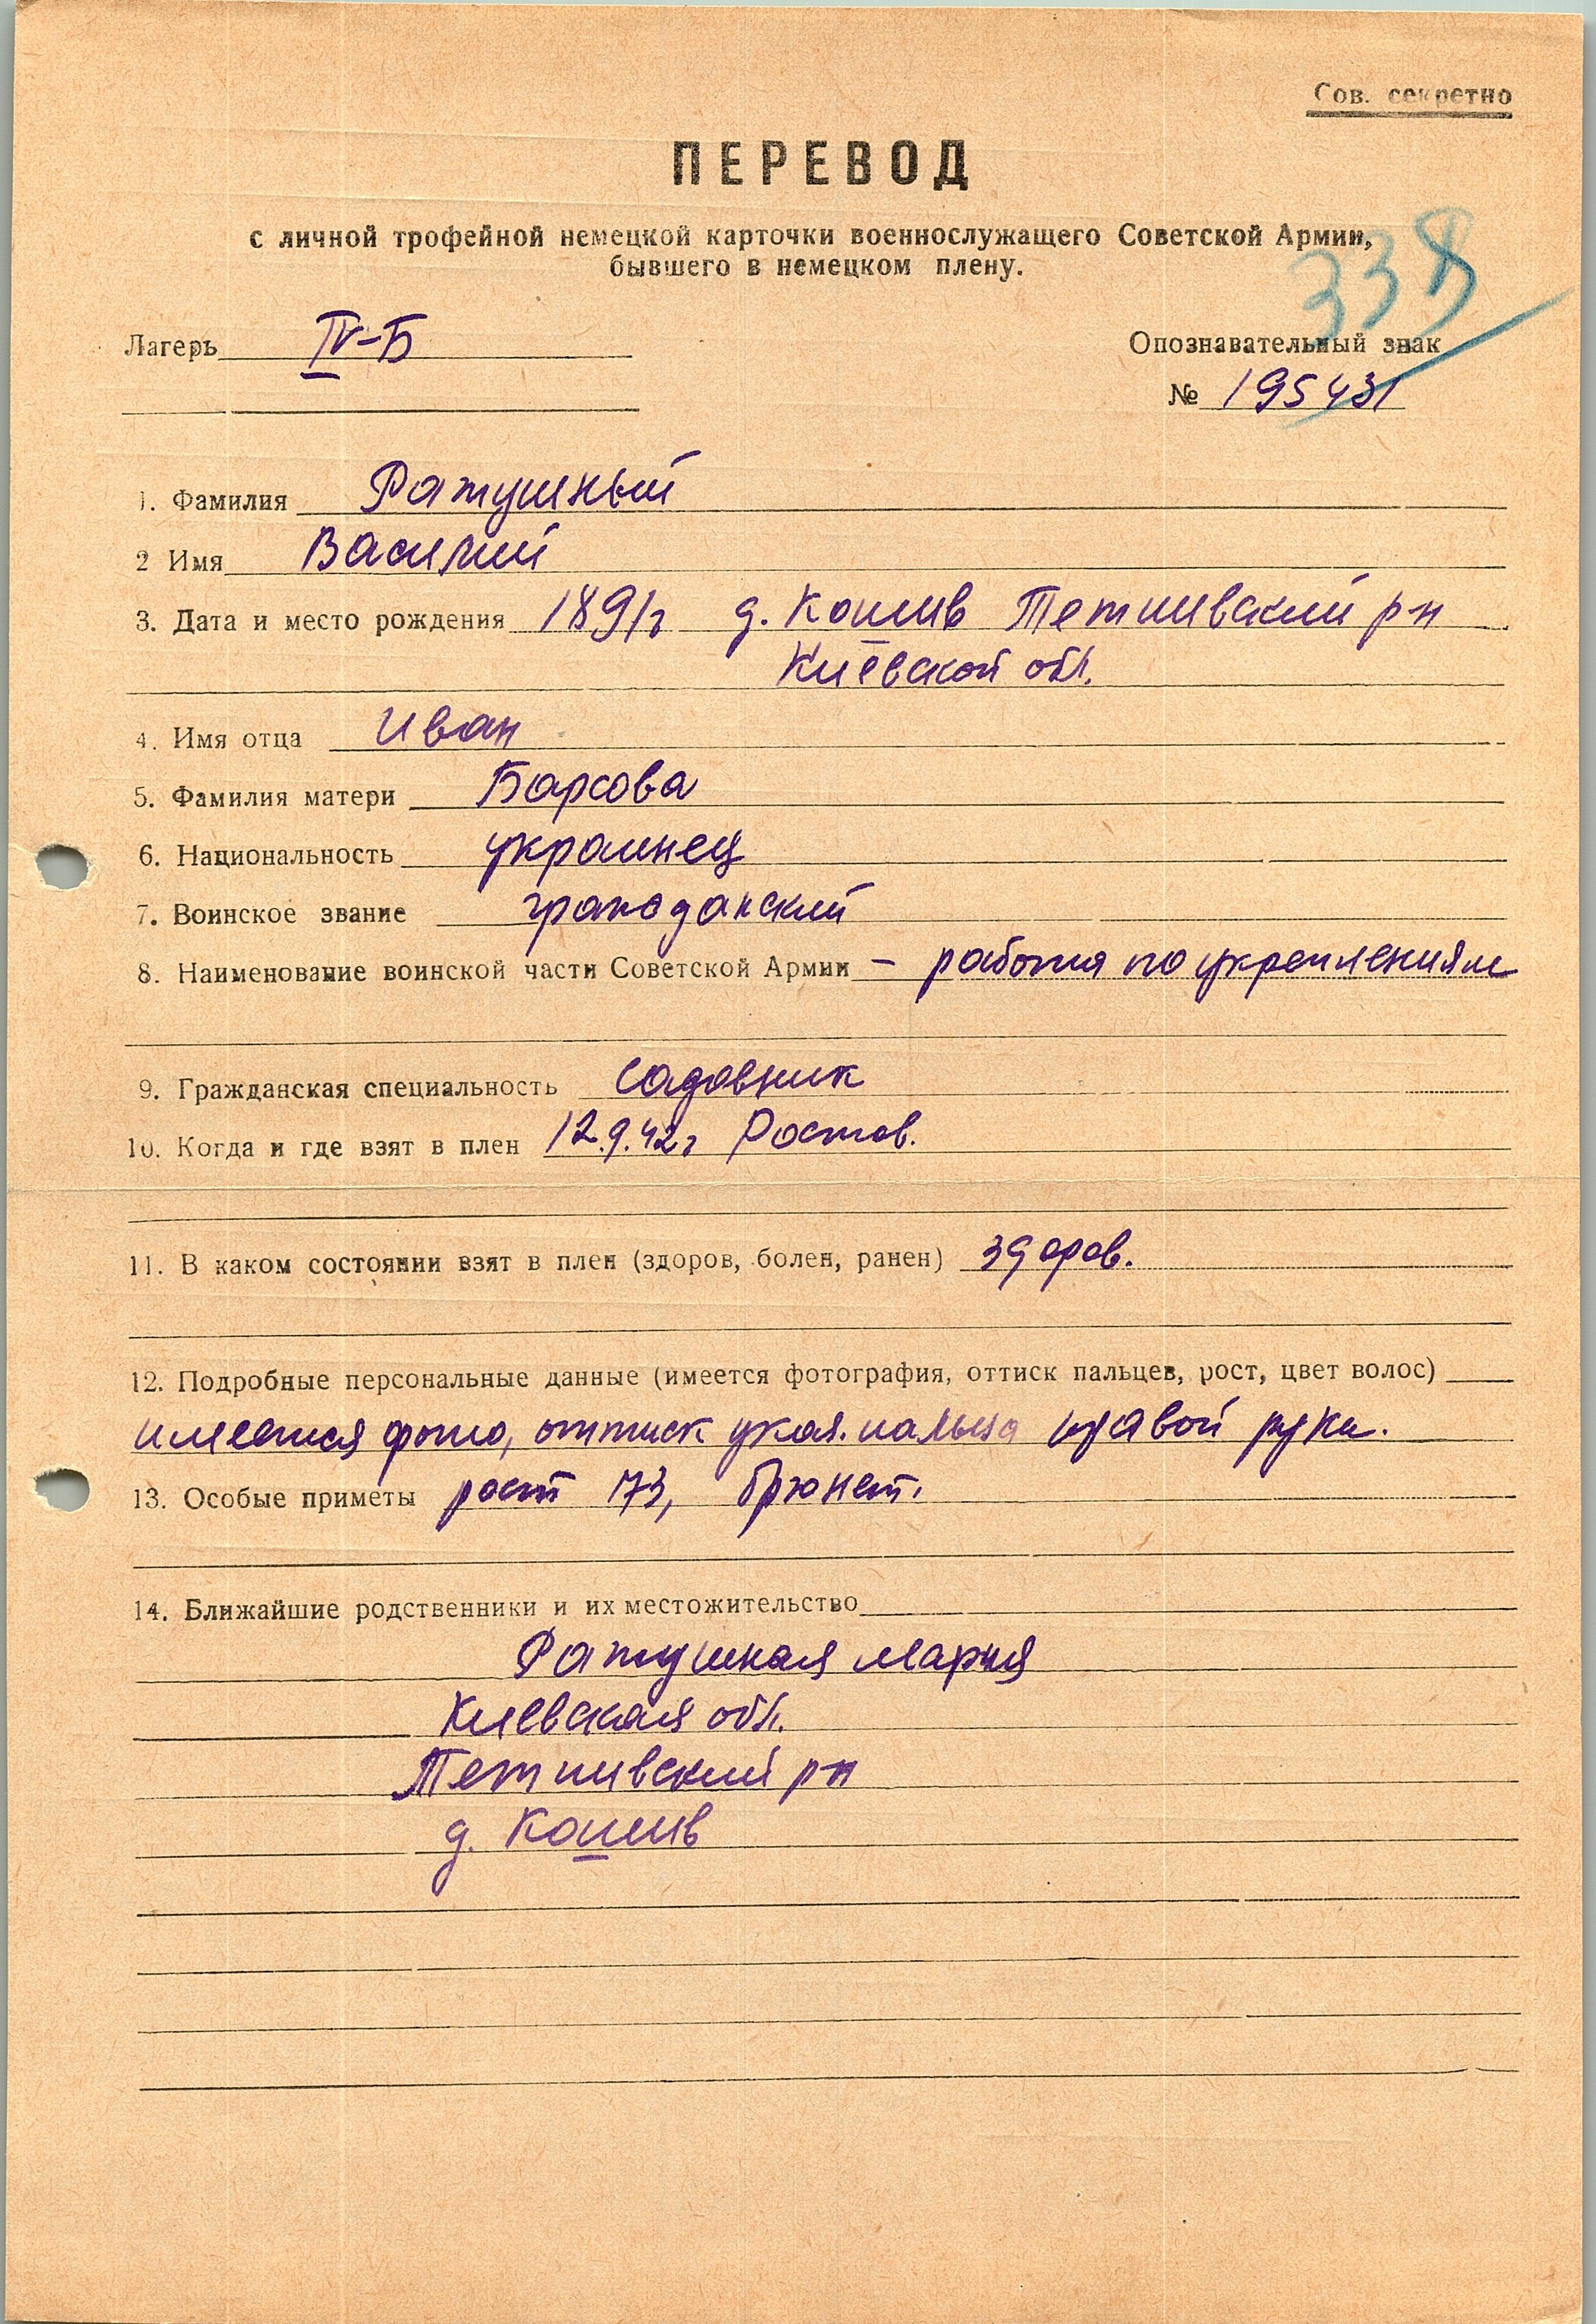 Сов. секретно
ПЕРЕВОД
с личной трофейной немецкой карточки военнослужащего Советской Армии,
бывшего в немецком плену.
338
Лагерь IV-Б
Опознавательный знак
№ 195431
1. Фамилия Ратушный
2 Имя Василий
3. Дата и место рождения 1891г д. Кошив Тетиивский р-н
Киевской обл.
4. Имя отца Иван
5. Фамилия матери Барсова
6. Национальность украинец
7. Воинское звание гражданский
8. Наименование воинской части Советской Армии – работа по укреплениям
9. Гражданская специальность садовник
10. Когда и где взят в плен 12.9.42г Ростов.
11. В каком состоянии взят в плен (здоров, болен, ранен) здоров.
12. Подробные персональные данные (имеется фотография, оттиск пальцев, рост, цвет волос)
имеется фото, оттиск указ. пальца правой руки.
13. Особые приметы рост 173, брюнет.
14. Ближайшие родственники и их местожительство
Ратушная Мария
Киевская обл.
Тетиивский р-н
д. Кошив